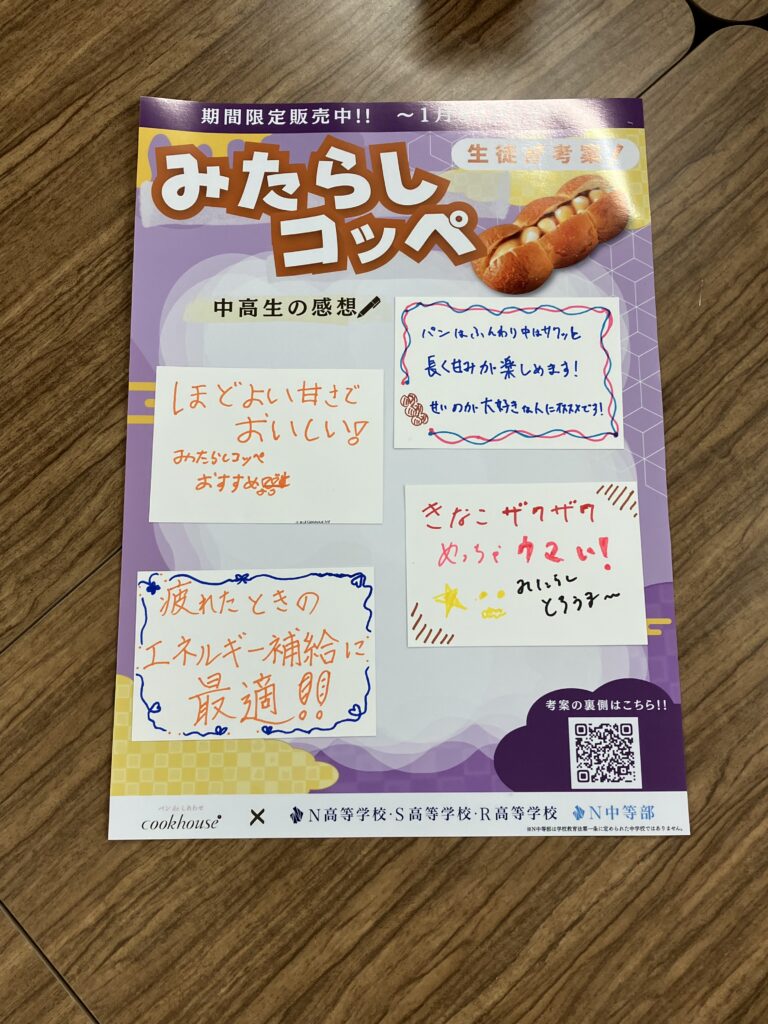 期間限定販売中!! ～1月
生徒が考案!
みたらし
コッペ
中高生の感想
パンはふんわり中はサクッと
長く甘みが楽しめます!
甘いのが大好きな人にオススメです!
ほどよい甘さで
おいしい!
みたらしコッペ
おすすめ
きなこザクザク
めっちゃウマい!
みたらし
とろうま～
疲れたときの
エネルギー補給に
最適!!
考案の裏側はこちら!!
パン de しあわせ
cookhouse × N高等学校・S高等学校・R高等学校 N中等部
※N中等部は学校教育法第一条に定められた中学校ではありません。